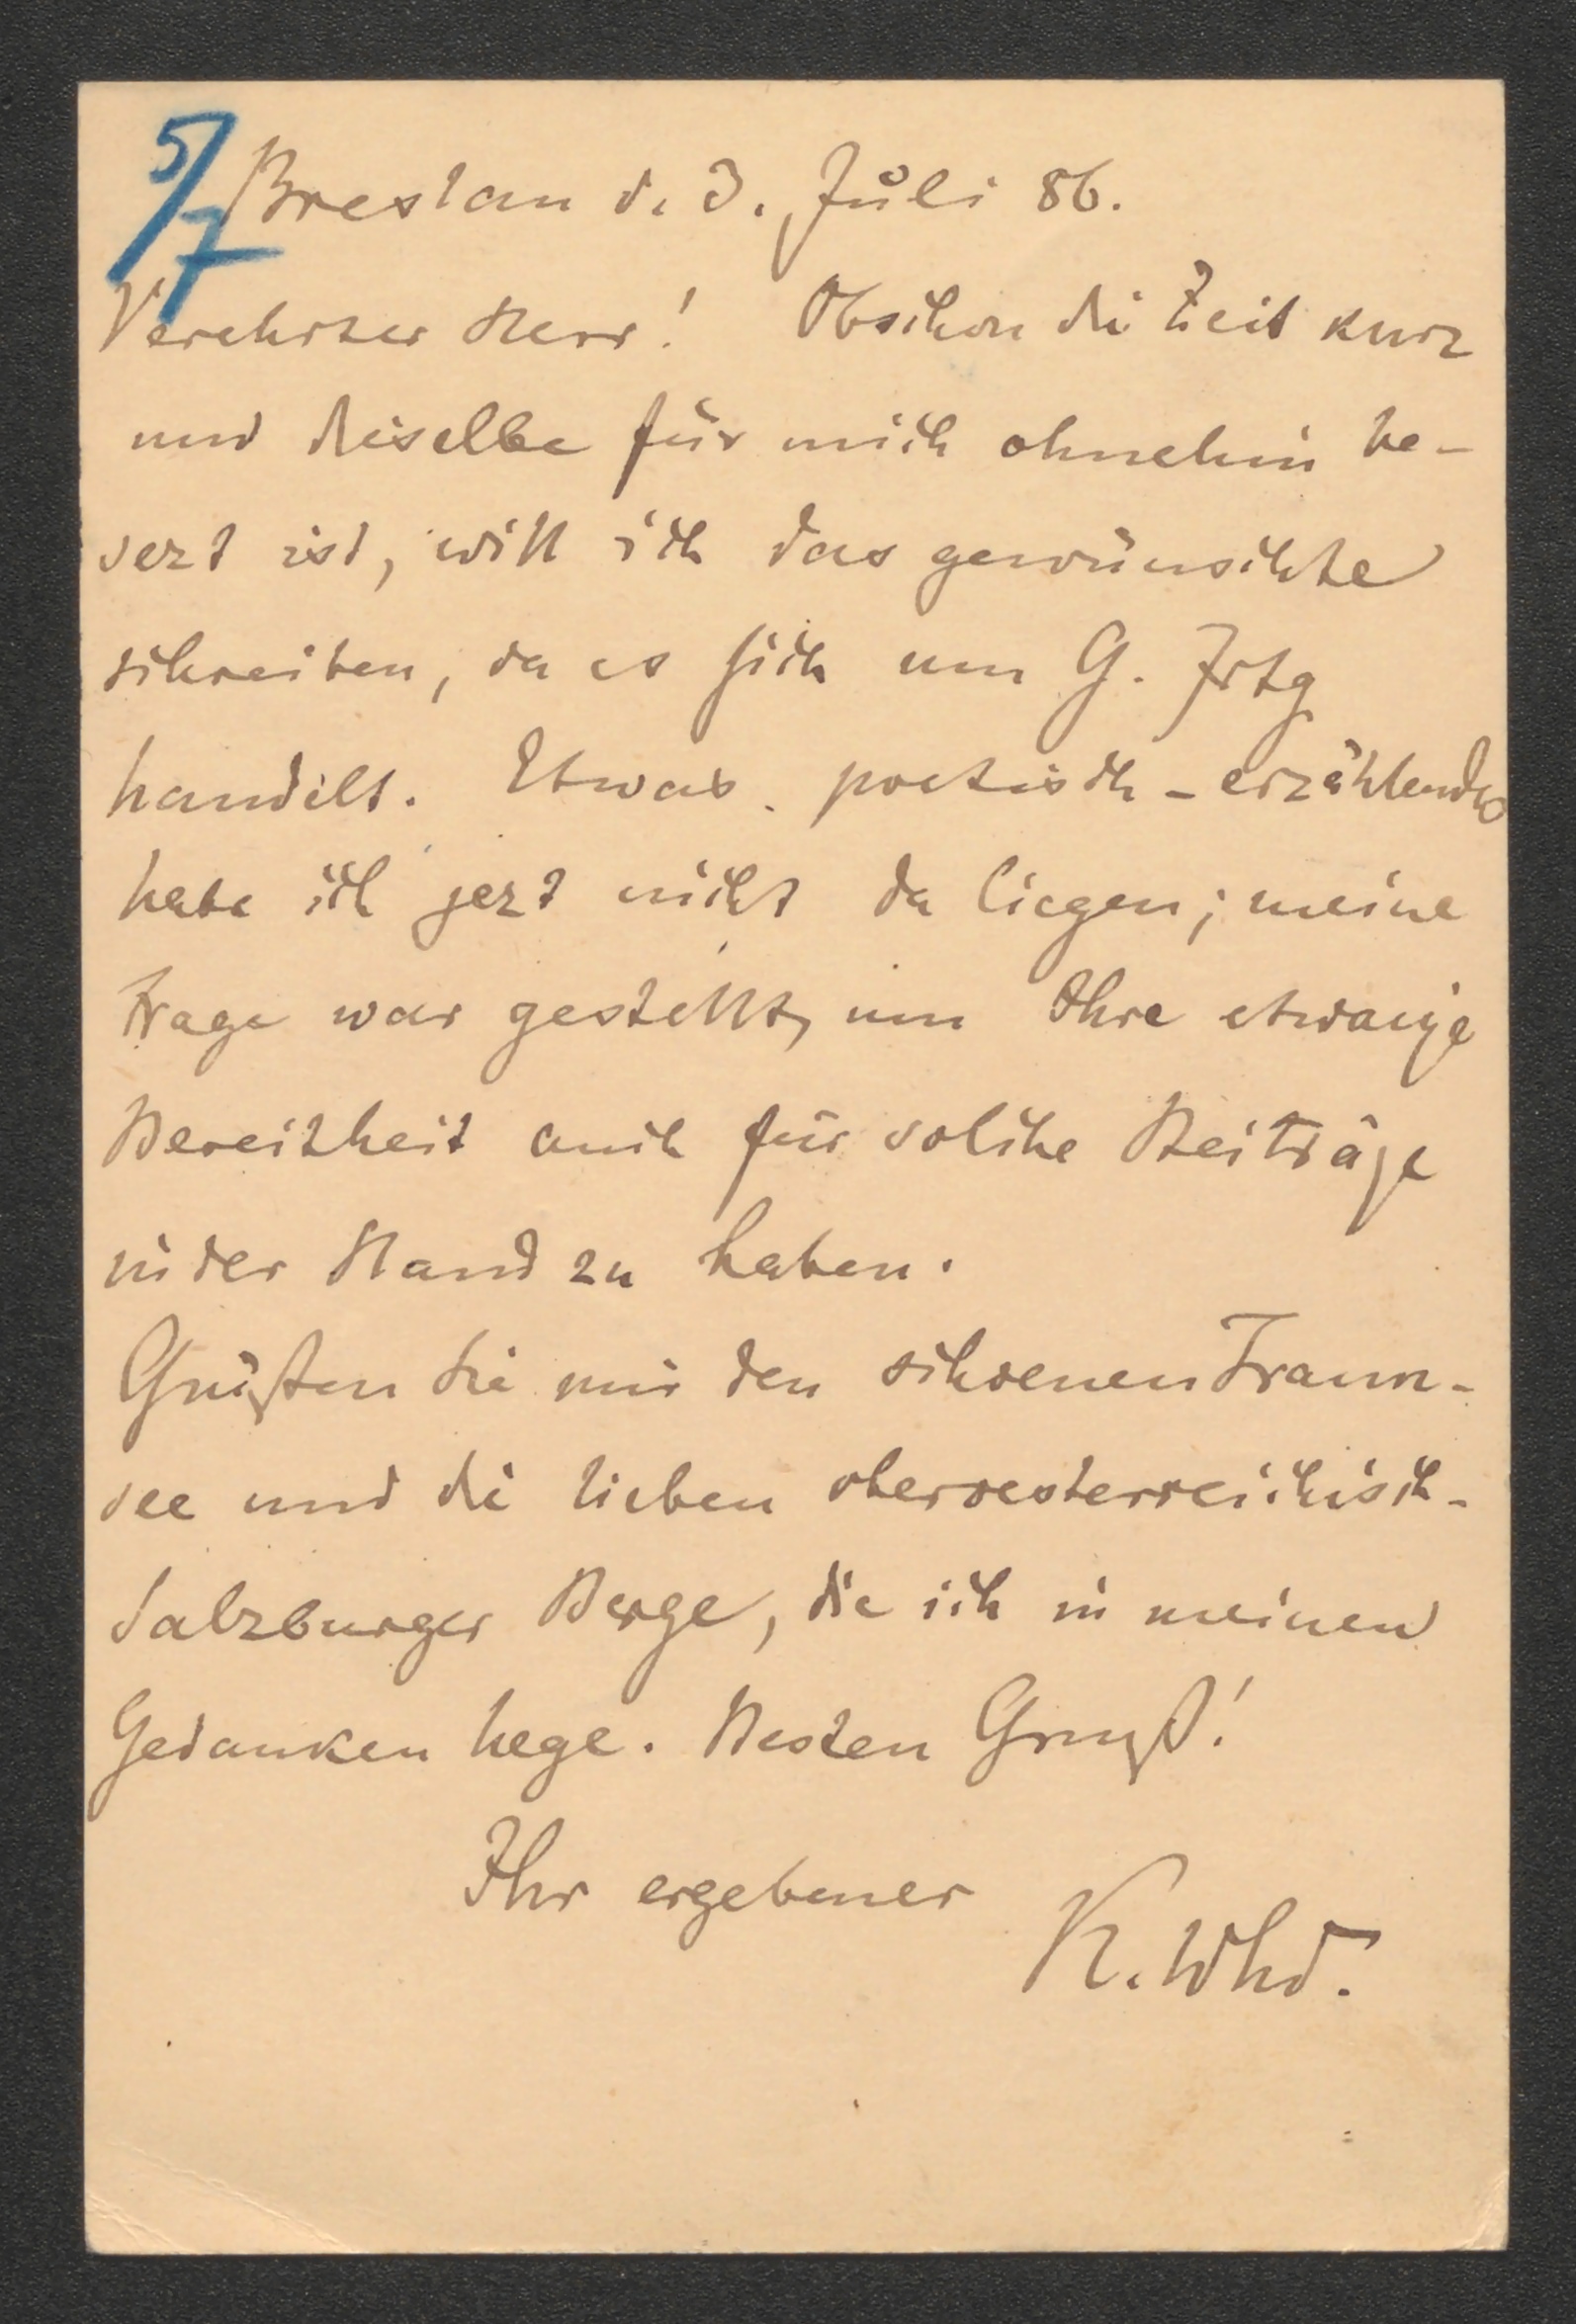 5/7
Breslau d. 3. Juli 86.
Verehrter Herr! Obschon die Zeit kurz
und dieselbe für mich ohnehin be-
sezt ist, will ich das gewünschte
schreiben, da es sich um G. Frtg
handelt. Etwas poetisch-erzählendes
habe ich jezt nicht da liegen; meine
Frage war gestellt, um Ihre etwaige
Bereitheit auch für solche Beiträge
in der Hand zu haben.
Grüßen Sie mir den schoenen Traun-
see und die lieben oberoesterreichisch-
Salzburger Berge, die ich in meinen
Gedanken hege. Besten Gruß!
Ihr ergebener
K. Whd.